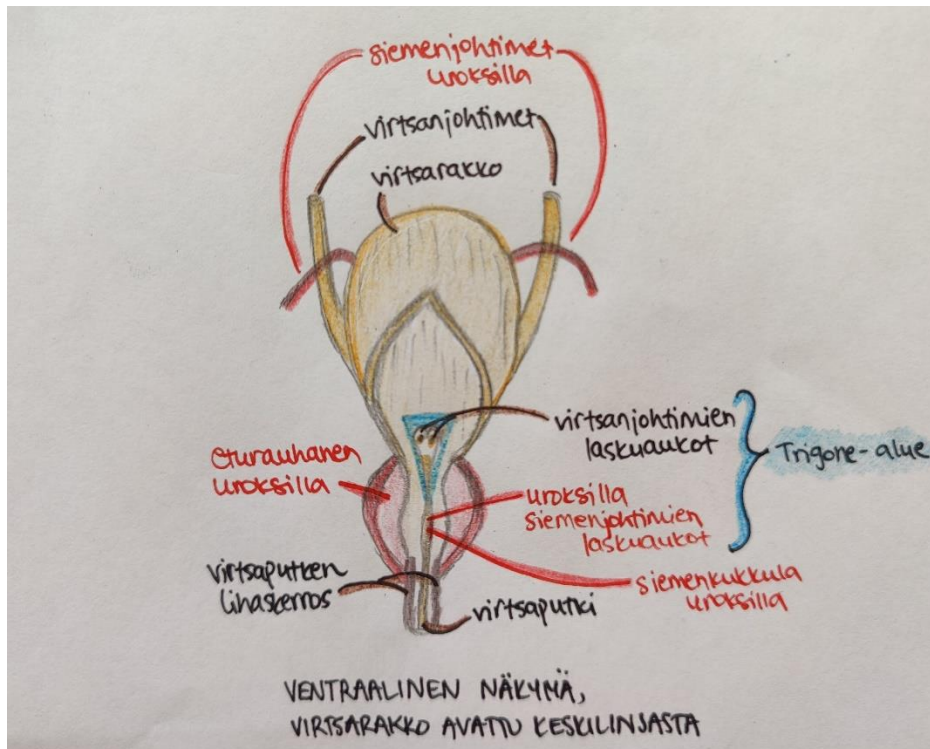 siemenjohtimet
uroksilla
virtsanjohtimet
virtsarakko
virtsanjohtimien
laskuaukot
Trigone-alue
eturauhanen
uroksilla
uroksilla
siemenjohtimien
laskuaukot
virtsaputken
lihaskerros
siemenkukkula
uroksilla
virtsaputki
VENTRAALINEN NÄKYMÄ,
VIRTSARAKKO AVATTU KESKILINJASTA